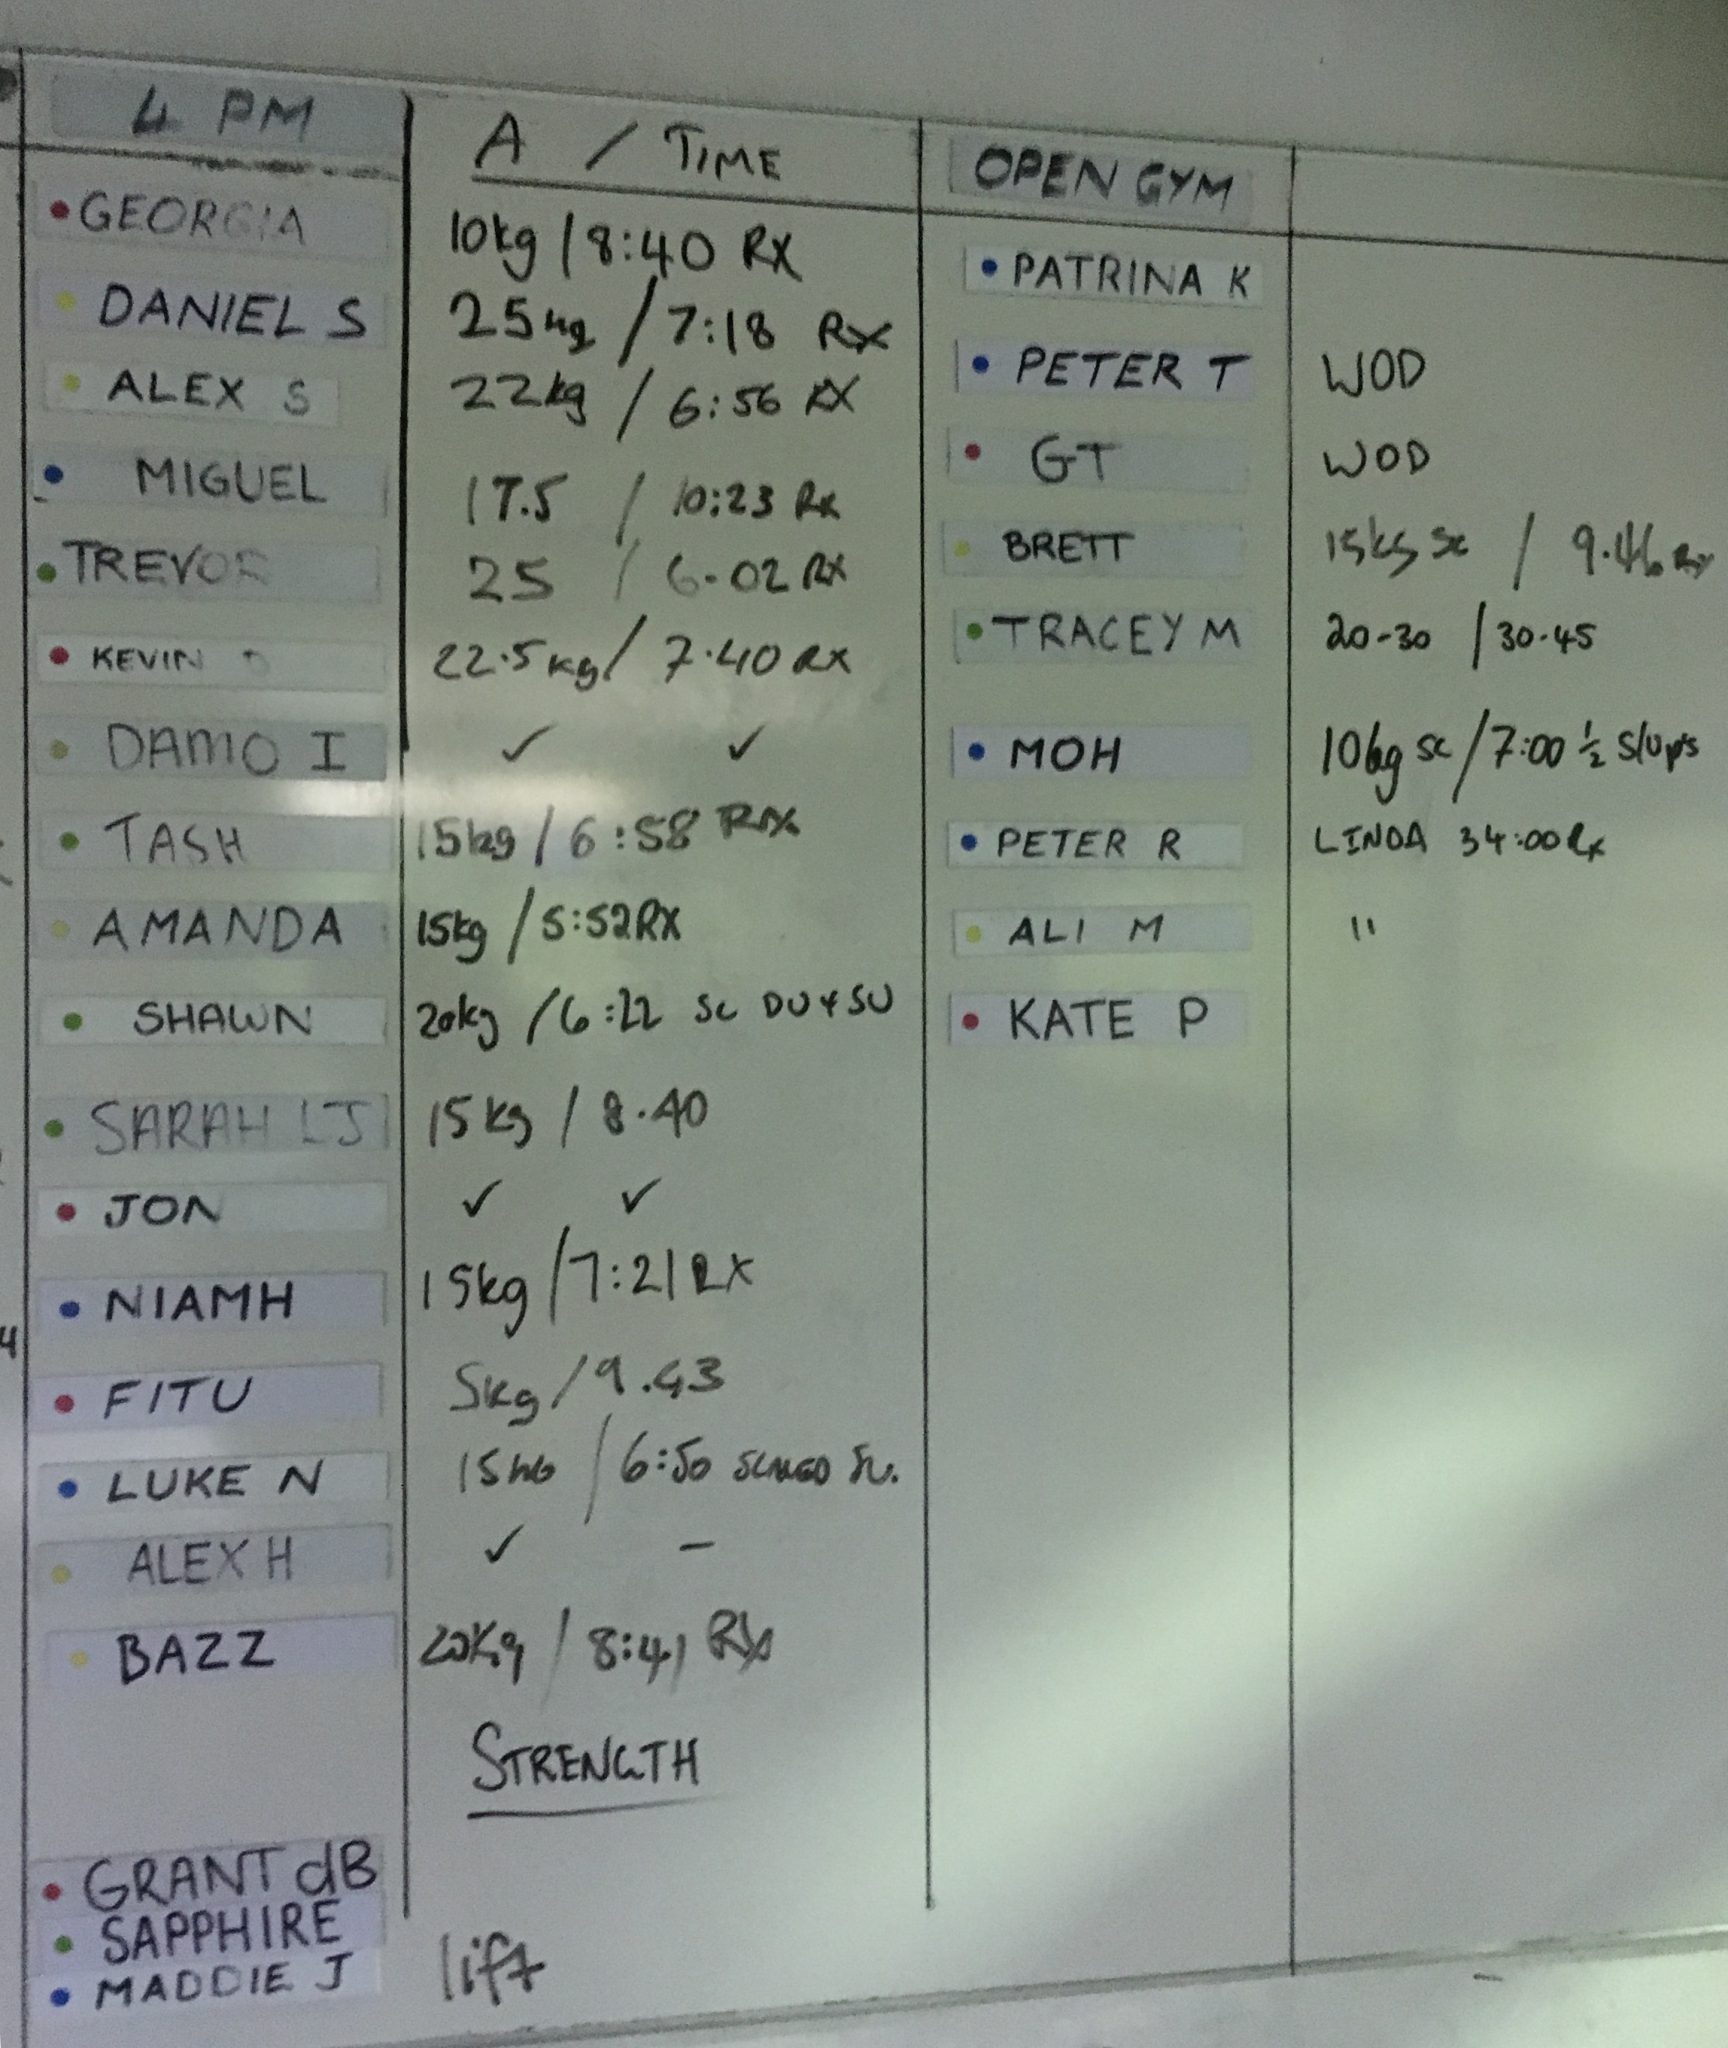 4 PM
A / TIME
GEORGIA 10kg / 8:40 RX
DANIEL S 25kg / 7:18 RX
ALEX S 22kg / 6:56 RX
MIGUEL 17.5 / 10:23 Rx
TREVOR 25 / 6.02 RX
KEVIN 22.5kg / 7.40 RX
DAMO I ✓ ✓
TASH 15kg / 6:58 RX
AMANDA 15kg / 5:52 RX
SHAWN 20kg / 6:22 SC DU + SU
SARAH LJ 15kg / 8.40
JON ✓ ✓
NIAMH 15kg / 7:21 RX
FITU 5kg / 9.43
LUKE N 15KG / 6:50 SCALED SU.
ALEX H ✓ –
BAZZ 20Kg / 8:41 Rx
STRENGTH
GRANT dB
SAPPHIRE
MADDIE J lift
OPEN GYM
PATRINA K
PETER T WOD
GT WOD
BRETT 15kg sc / 9.46 Rx
TRACEY M 20-30 / 30.45
MOH 10kg sc / 7:00 ½ S/Ups
PETER R LINDA 34:00 Rx
ALI M "
KATE P
4